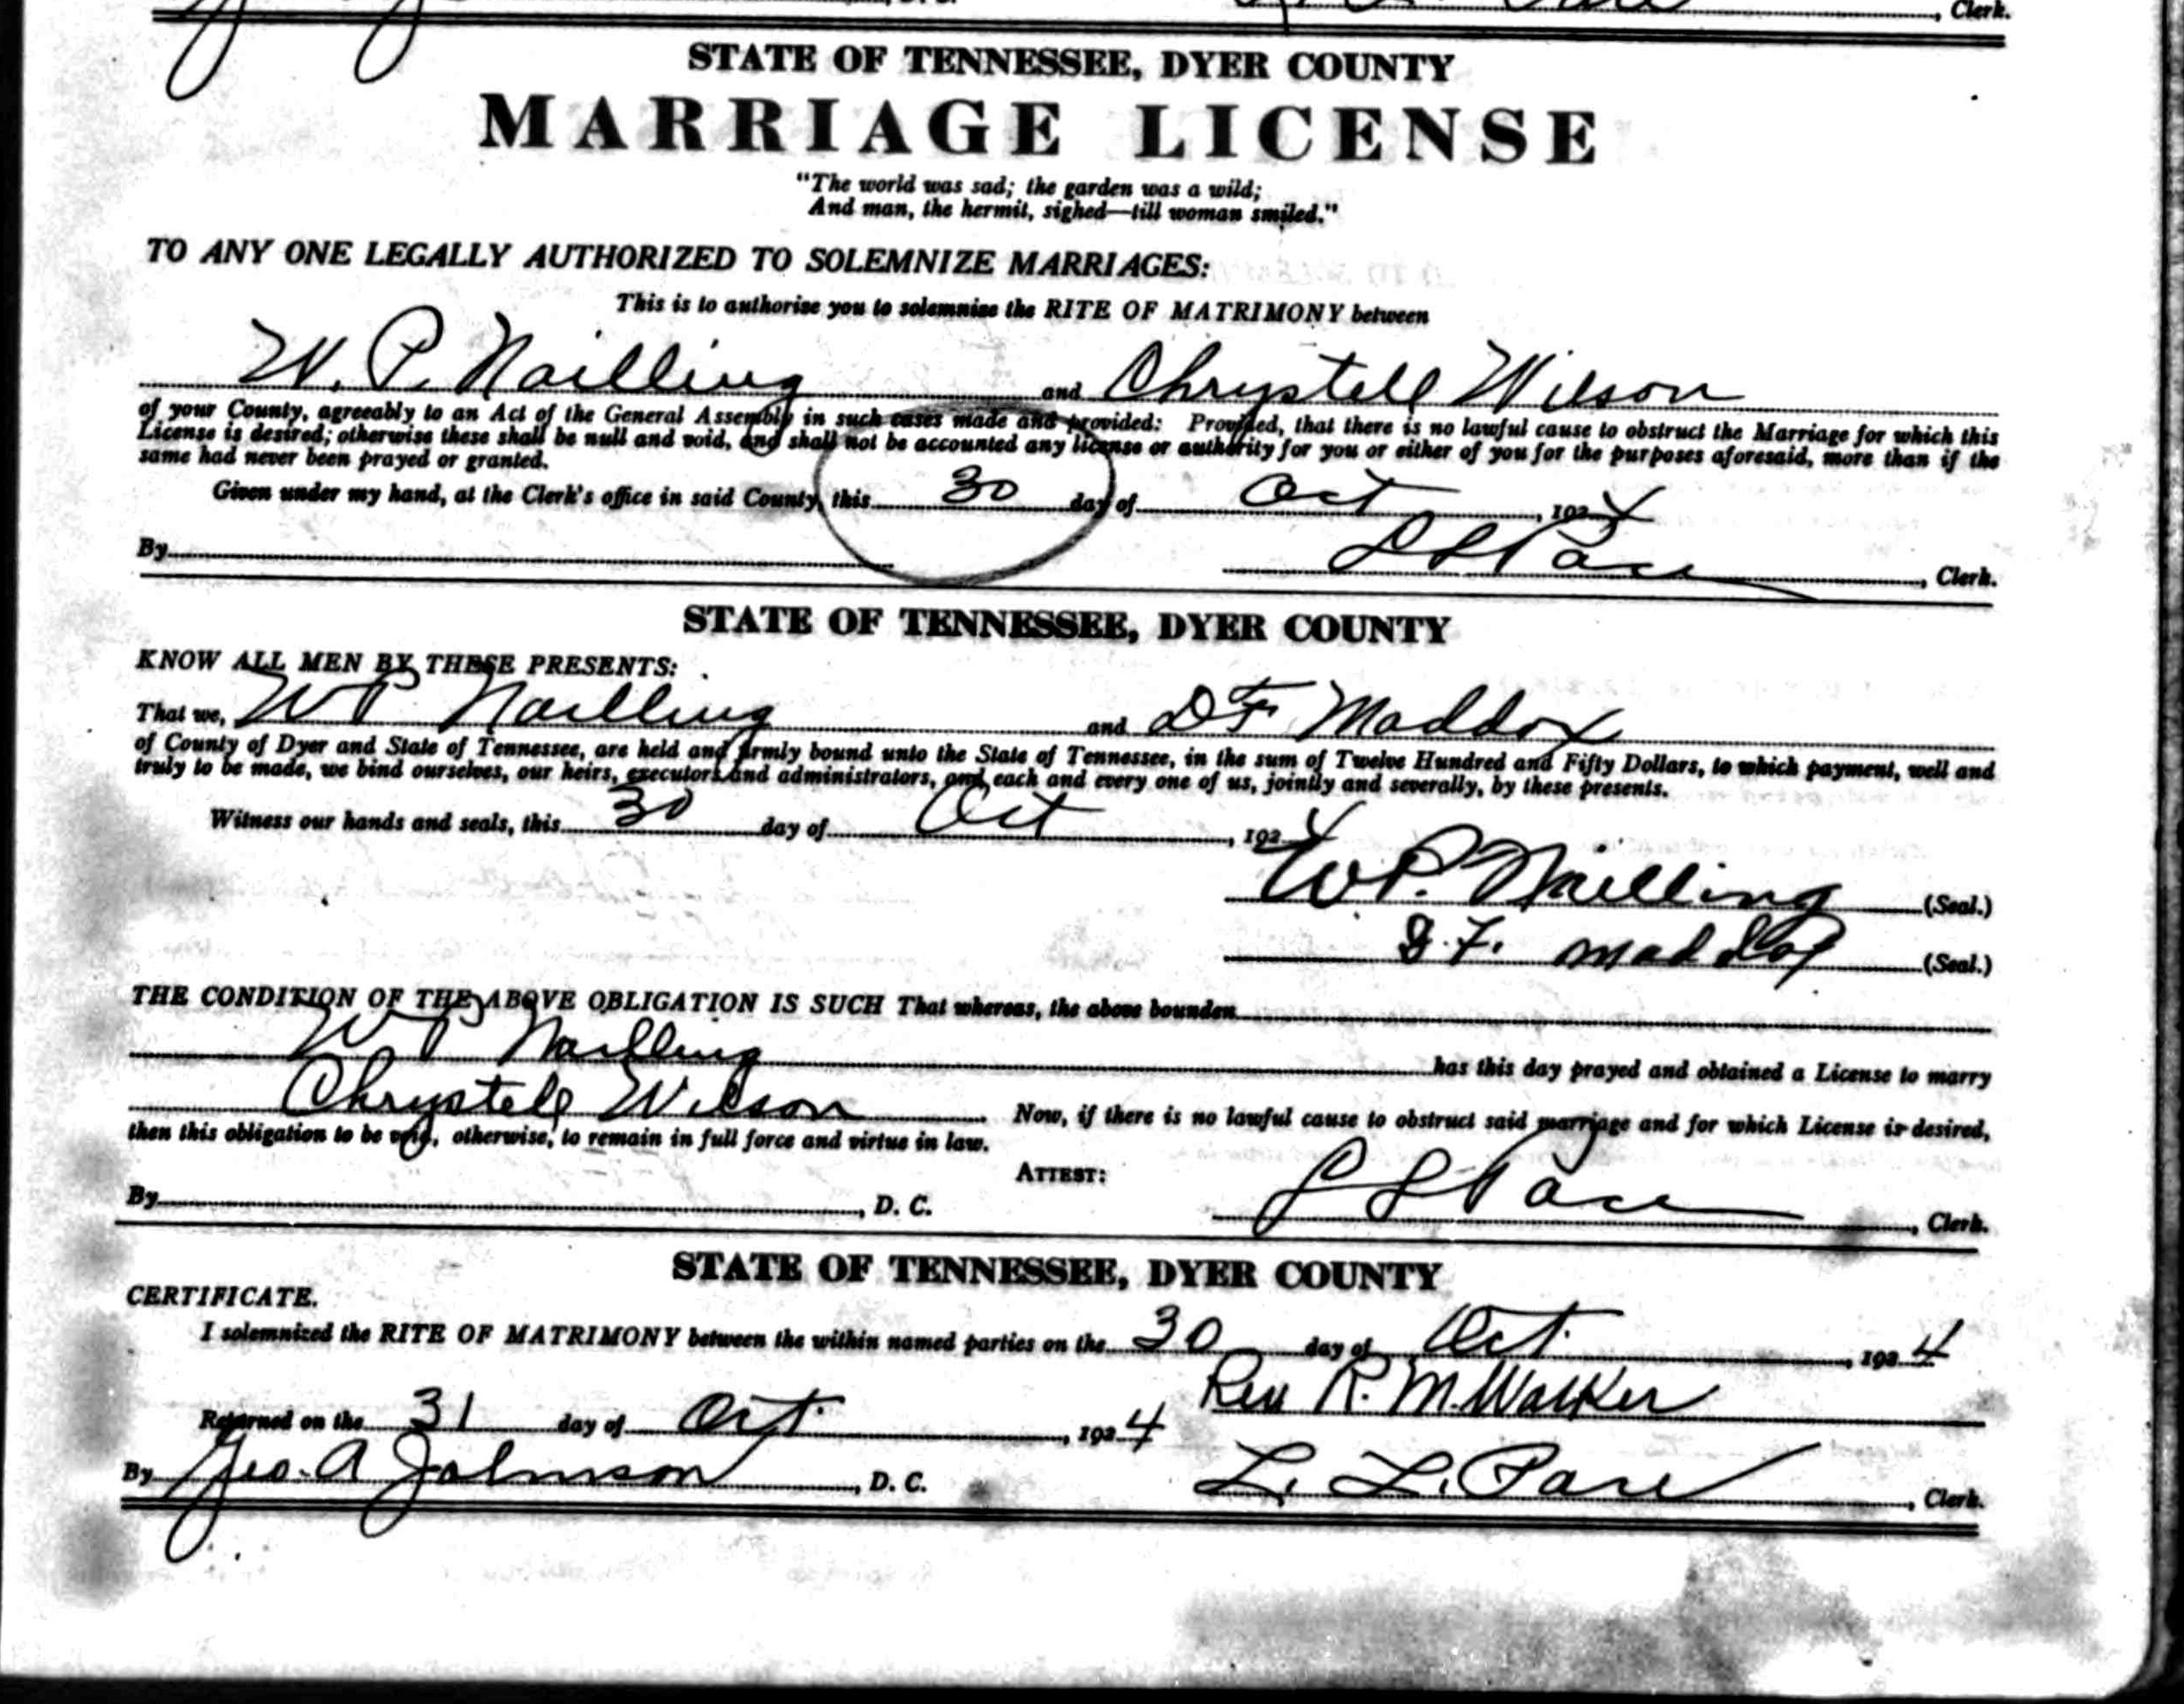 , Clerk.
STATE OF TENNESSEE, DYER COUNTY
MARRIAGE LICENSE
"The world was sad; the garden was a wild;
And man, the hermit, sighed—till woman smiled."
TO ANY ONE LEGALLY AUTHORIZED TO SOLEMNIZE MARRIAGES:
This is to authorize you to solemnize the RITE OF MATRIMONY between
W. P. Nailling and Chrystell Wilson
of your County, agreeably to an Act of the General Assembly in such cases made and provided: Provided, that there is no lawful cause to obstruct the Marriage for which this
License is desired; otherwise these shall be null and void, and shall not be accounted any license or authority for you or either of you for the purposes aforesaid, more than if the
same had never been prayed or granted.
Given under my hand, at the Clerk's office in said County, this 30 day of Oct, 1924
By L L Pace, Clerk.
STATE OF TENNESSEE, DYER COUNTY
KNOW ALL MEN BY THESE PRESENTS:
That we, W P Nailling and D F Maddox
of County of Dyer and State of Tennessee, are held and firmly bound unto the State of Tennessee, in the sum of Twelve Hundred and Fifty Dollars, to which payment, well and
truly to be made, we bind ourselves, our heirs, executors and administrators, and each and every one of us, jointly and severally, by these presents.
Witness our hands and seals, this 30 day of Oct, 1924
W P. Nailling (Seal.)
D. F. Maddox (Seal.)
THE CONDITION OF THE ABOVE OBLIGATION IS SUCH That whereas, the above bounden
W P Nailling has this day prayed and obtained a License to marry
Chrystell Wilson Now, if there is no lawful cause to obstruct said marriage and for which License is desired,
then this obligation to be void, otherwise, to remain in full force and virtue in law.
ATTEST:
By , D. C. L L Pace, Clerk.
STATE OF TENNESSEE, DYER COUNTY
CERTIFICATE.
I solemnized the RITE OF MATRIMONY between the within named parties on the 30 day of Oct., 1924
Rev R. M. Walker
Returned on the 31 day of Oct., 1924
By Geo. A Johnson, D. C. L. L. Pace, Clerk.